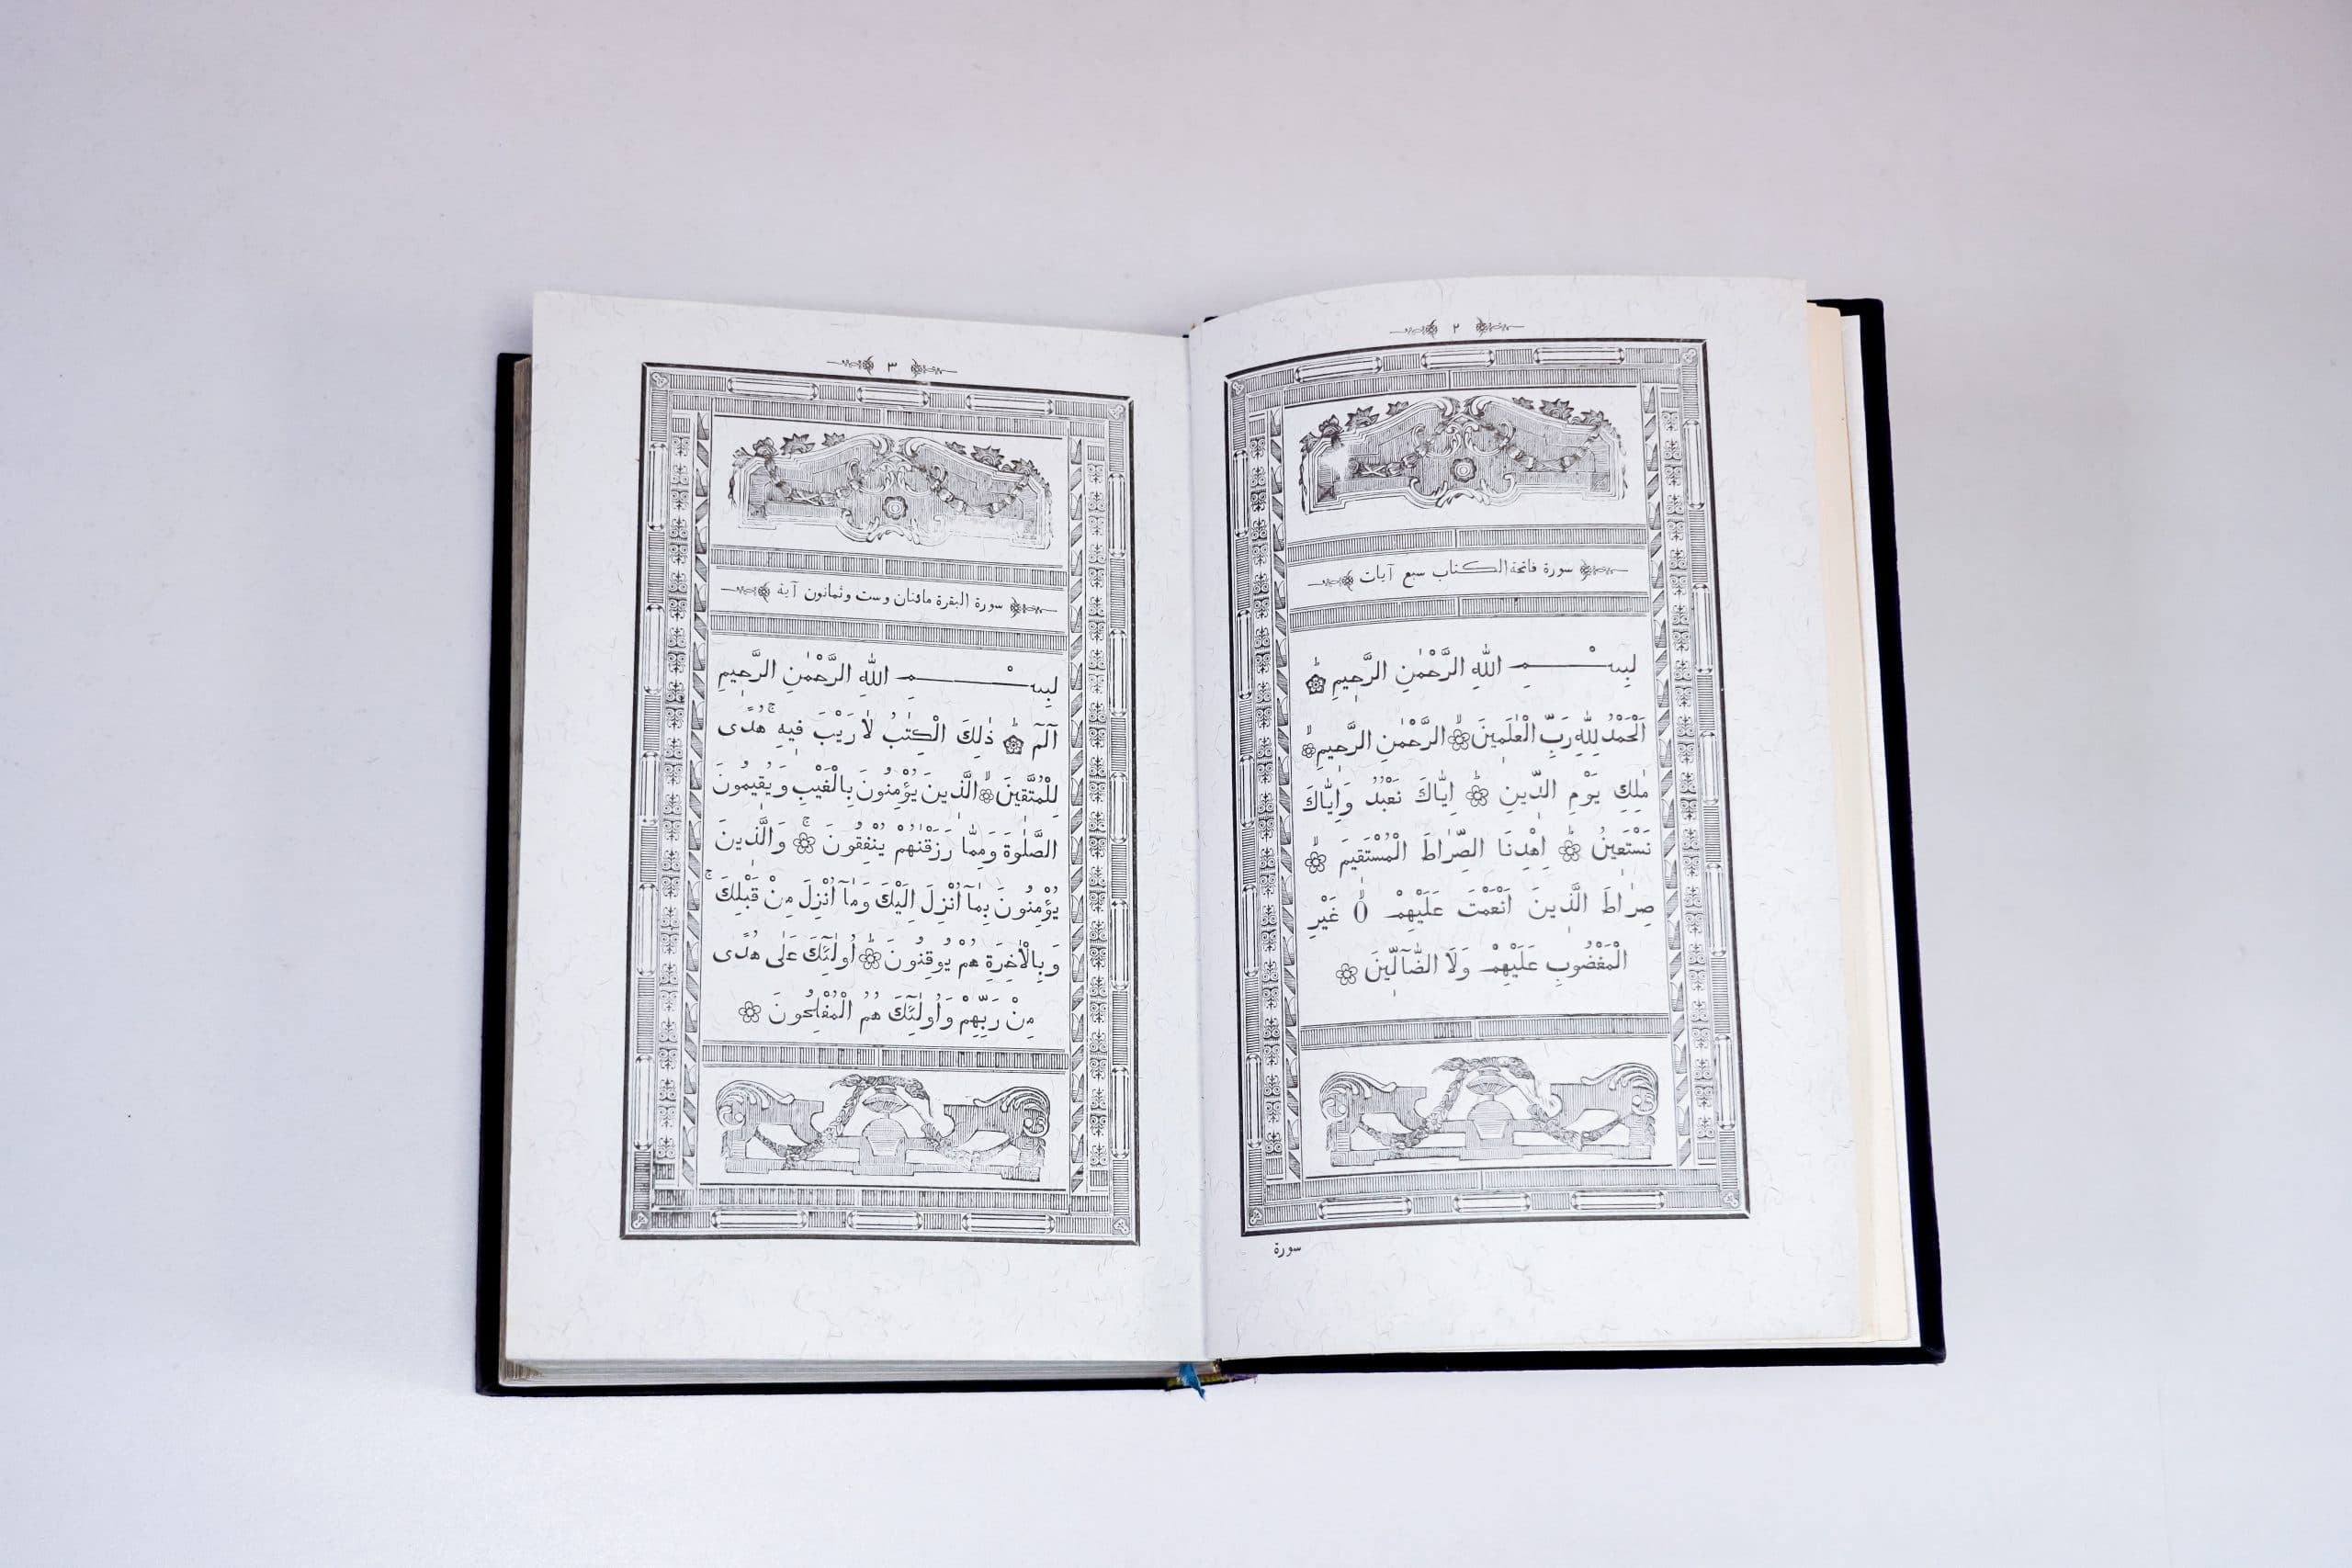 ٢
سورة فاتحة الكتاب سبع آيات
بِسْمِ اللّٰهِ الرَّحْمٰنِ الرَّحٖيمِ ۞ؕ
اَلْحَمْدُ لِلّٰهِ رَبِّ الْعٰلَمٖينَ ۞ۙ الرَّحْمٰنِ الرَّحٖيمِ ۞ۙ
مٰلِكِ يَوْمِ الدّٖينِ ۞ؕ اِيَّاكَ نَعْبُدُ وَاِيَّاكَ
نَسْتَعٖينُ ۞ؕ اِهْدِنَا الصِّرَاطَ الْمُسْتَقٖيمَ ۞ۙ
صِرَاطَ الَّذٖينَ اَنْعَمْتَ عَلَيْهِمْ ۙ۬ غَيْرِ
الْمَغْضُوبِ عَلَيْهِمْ وَلَا الضَّٓالّٖينَ ۞
سورة
٣
سورة البقرة مائتان وست وثمانون آية
بِسْمِ اللّٰهِ الرَّحْمٰنِ الرَّحٖيمِ
الٓمٓ ۞ؕ ذٰلِكَ الْكِتٰبُ لَا رَيْبَ فٖيهِ ۚ هُدًى
لِلْمُتَّقٖينَ ۞ۙ الَّذٖينَ يُؤْمِنُونَ بِالْغَيْبِ وَيُقٖيمُونَ
الصَّلٰوةَ وَمِمَّا رَزَقْنٰهُمْ يُنْفِقُونَ ۞ۚ وَالَّذٖينَ
يُؤْمِنُونَ بِمَٓا اُنْزِلَ اِلَيْكَ وَمَٓا اُنْزِلَ مِنْ قَبْلِكَ ۚ
وَبِالْاٰخِرَةِ هُمْ يُوقِنُونَ ۞ؕ اُولٰٓئِكَ عَلٰى هُدًى
مِنْ رَبِّهِمْ وَاُولٰٓئِكَ هُمُ الْمُفْلِحُونَ ۞